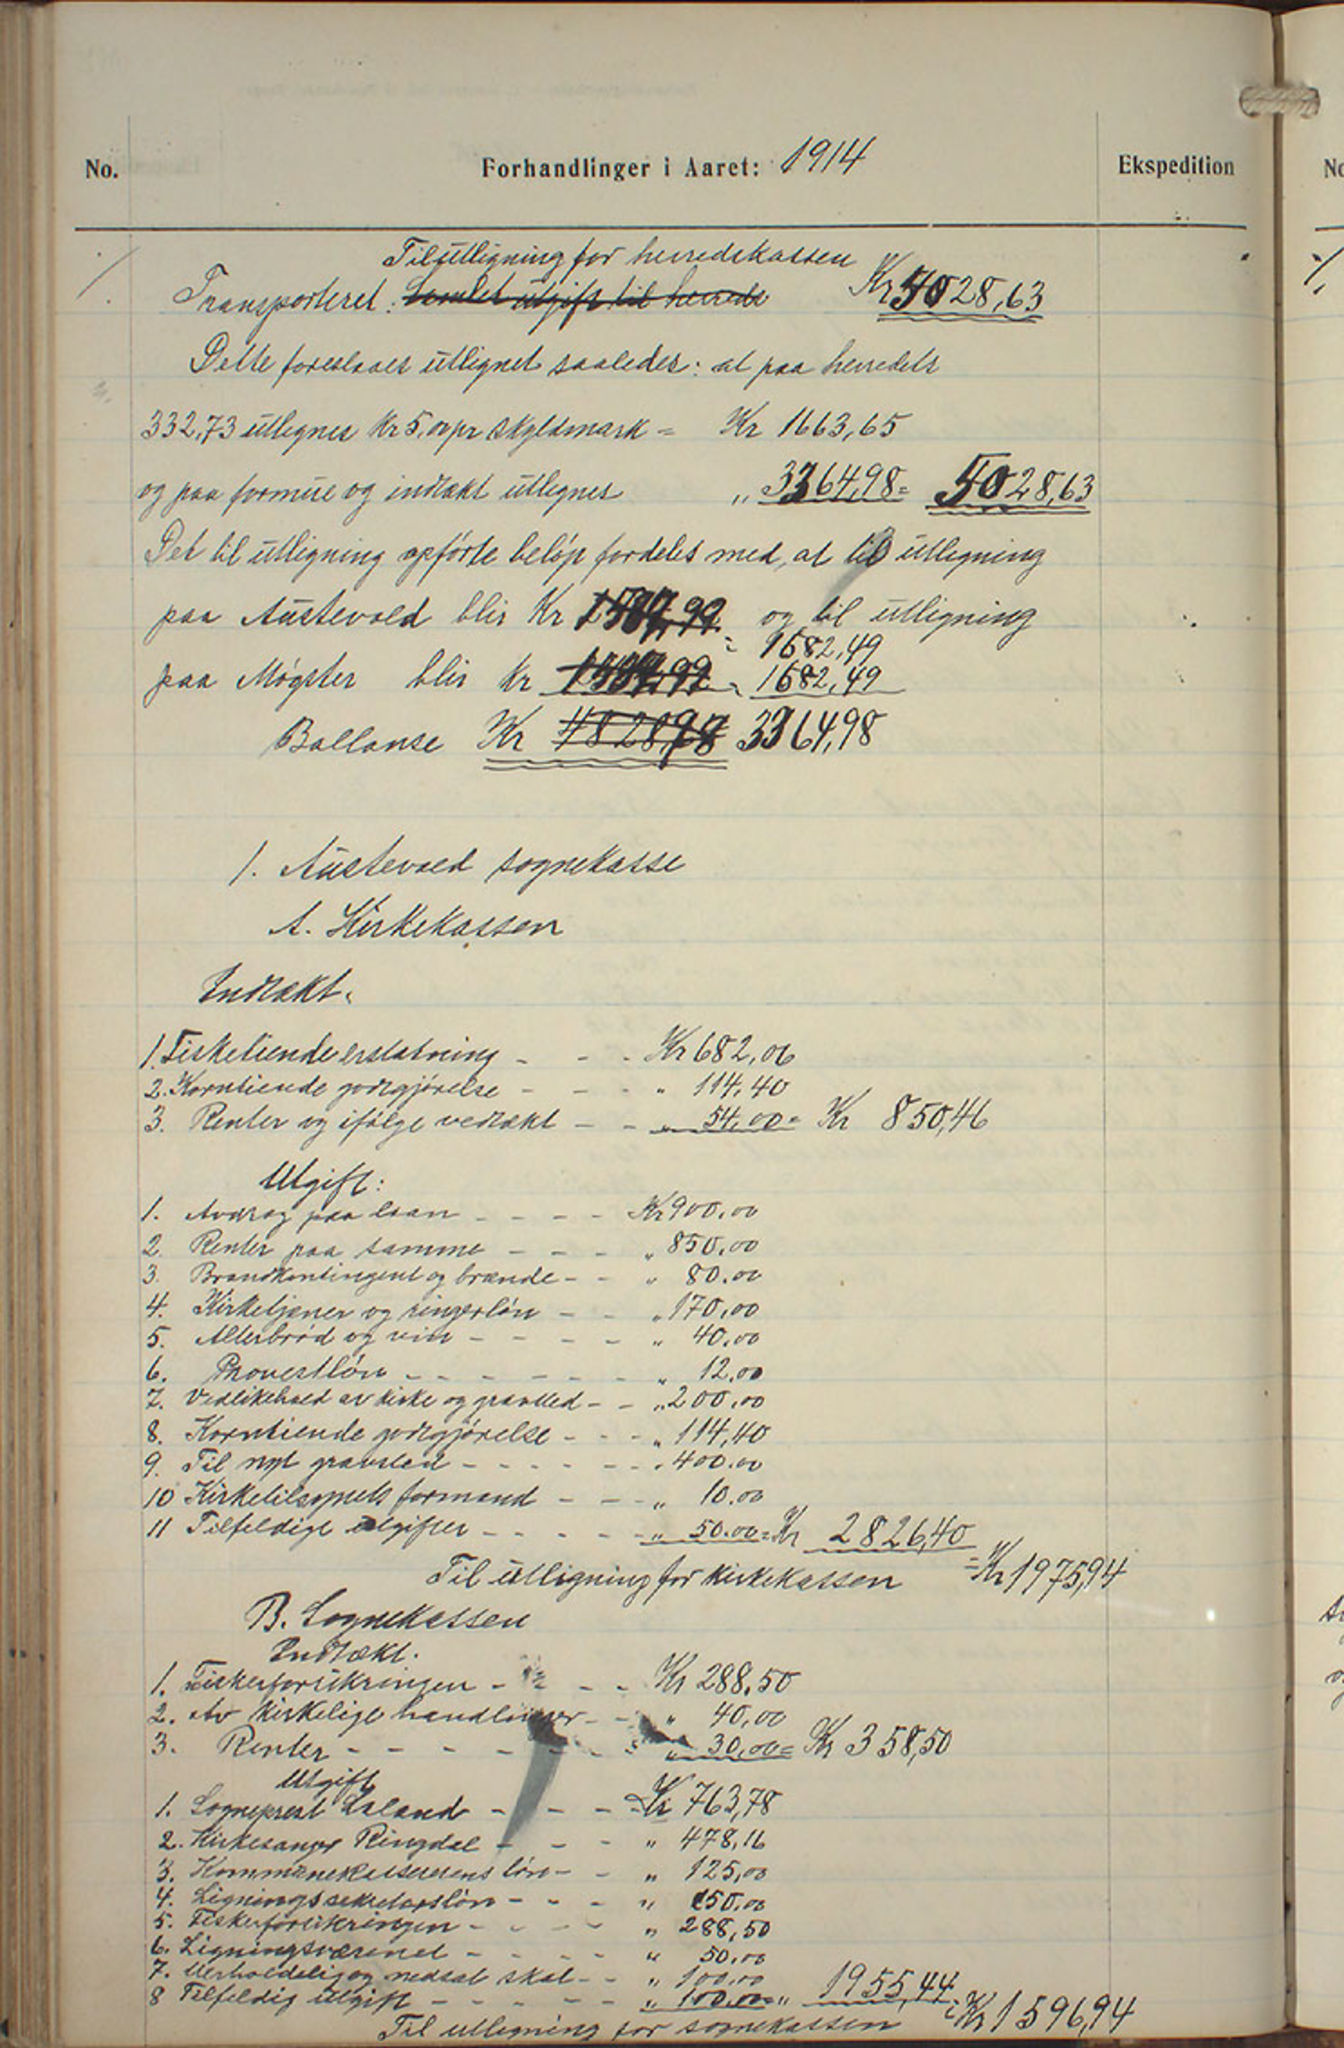 No.
Forhandlinger i Aaret: 1914
Ekspedition
Til utligning for herredskassen
Transporteret: Samlet utgift til herreds Kr 5028,63
Dette foreslaaes utlignet saaledes: at paa herredets
332,73 utlignes Kr 5,00 pr skyldmark = Kr 1663,65
og paa formue og indtækt utlignes „ 3364,98 = 5028,63
Det til utligning opførte beløp fordeles med, at til utligning
paa Austevold blir Kr og til utligning
= 1682,49
paa Møgster blir Kr = 1682,49
Ballanse Kr 4828,78 3364,98
1. Austevold sognekasse
A. Kirkekassen
Indtækt.
1. Fisketiende erstatning - - - Kr 682,06
2. Korntiende godtgjørelse - - - " 114,40
3. Renter og ifølge vedtækt - - „ 54,00 = Kr 850,46
Utgift:
1. Avdrag paa laan - - - - Kr 900,00
2. Renter paa samme - - - „ 850,00
3. Brandkontingent og brænde - - „ 80,00
4. Kirketjener og ringerløn - - „ 170,00
5. Alterbrød og vin - - - - „ 40,00
6. Provestløn - - - - - - „ 12,00
7. Vedlikehold av kirke og gravsted - - „ 200,00
8. Korntiende godtgjørelse - - - „ 114,40
9. Til nyt gravsted - - - - - - „ 400,00
10 Kirketilsynets formand - - - „ 10,00
11 Tilfeldige utgifter - - - - - „ 50,00 = Kr 2826,40
Til utligning for kirkekassen = Kr 1975,94
B. Sognekassen
Indtækt.
1. Fiskerforsikringen - - - - Kr 288,50
2. Av kirkelige handlinger - - „ 40,00
3. Renter - - - - - - - „ 30,00 = Kr 358,50
Utgift
1. Sogneprest Laland - - - - Kr 763,78
2. Kirkesanger Ringdal - - - „ 478,16
3. Kommunekassererens løn - - „ 125,00
4. Ligningssekretærløn - - - „ 150,00
5. Fiskerforsikringen - - - - „ 288,50
6. Ligningsvæsenet - - - - „ 50,00
7. Uerholdelig og nedsat skat - - „ 100,00
8 Tilfeldig utgift - - - - - „ 100,00 = „ 1955,44 = Kr 1596,94
Til utligning for sognekassen